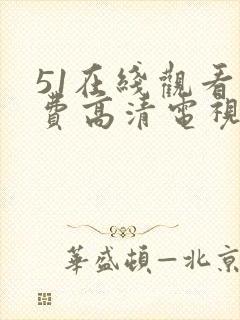 51在綫觀看
費高清電視
華盛頓—北京